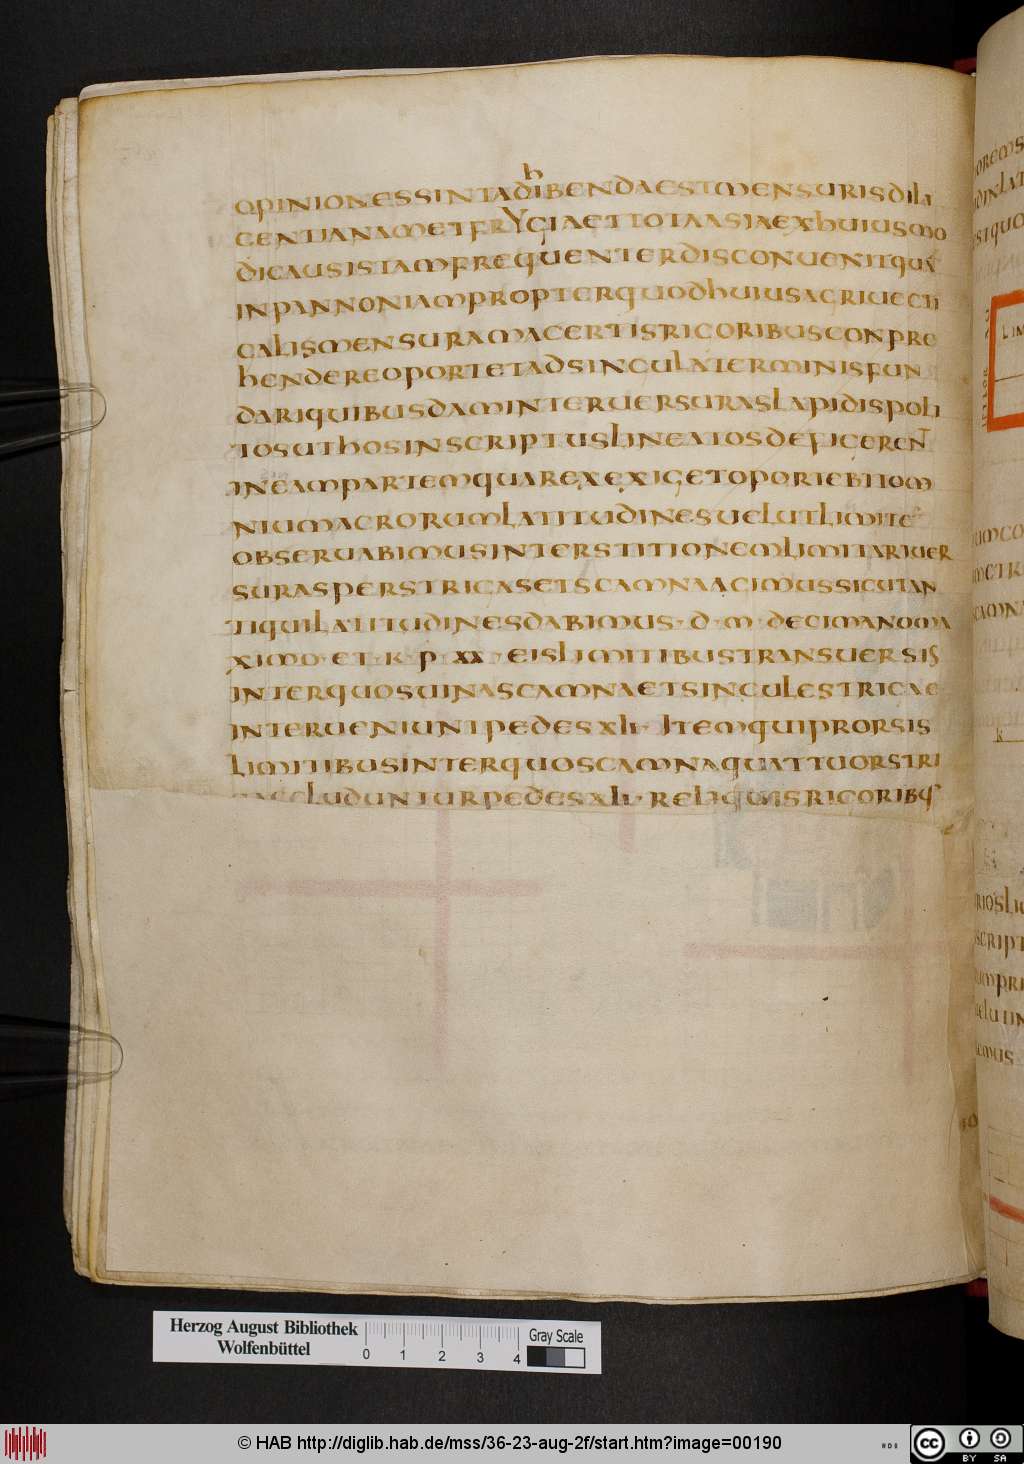 OPINIONESSINTADhIBENDAESTMENSURISDILI
GENTIANAMETFRYGIAETTOTAASIAEXHUIUSMO
DICAUSISTAMFREQUENTERDISCONUENITQUA
INPANNONIAMPROPTERQUODHUIUSAGRIUECTI
CALISMENSURAMACERTISRIGORIBUSCONPRE
HENDEREOPORTETADSINGULATERMINISFUN
DARIQUIBUSDAMINTERUERSURASLAPIDISPOLI
TOSUTHOSINSCRIPTUSLINEATOSDEFIGERENT
INEAMPARTEMQUAREXEXIGETOPORTEBITOM
NIUMAGRORUMLATITUDINESUELUTLIMITE
OBSERUABIMUSINTERSTITIONEMLIMITARIUER
SURASPERSTRIGASETSCAMNAAGIMUSSICUTAN
TIQUILATITUDINESDABIMUS·D·M·DECIMANOMA
XIMO·ET·K·P·XX·EISLIMITIBUSTRANSUERSIS
INTERQUOSUINASCAMNAETSINGULESTRIGAE
INTERUENIUNTPEDESXII·ITEMQUIPRORSIS
LIMITIBUSINTERQUOSCAMNAQUATTUORSTRI
GAECLUDUNTURPEDESXII·RELIQUISRIGORIBQ
Herzog August Bibliothek
Wolfenbüttel
0 1 2 3 4
Gray Scale
© HAB http://diglib.hab.de/mss/36-23-aug-2f/start.htm?image=00190
cc BY SA